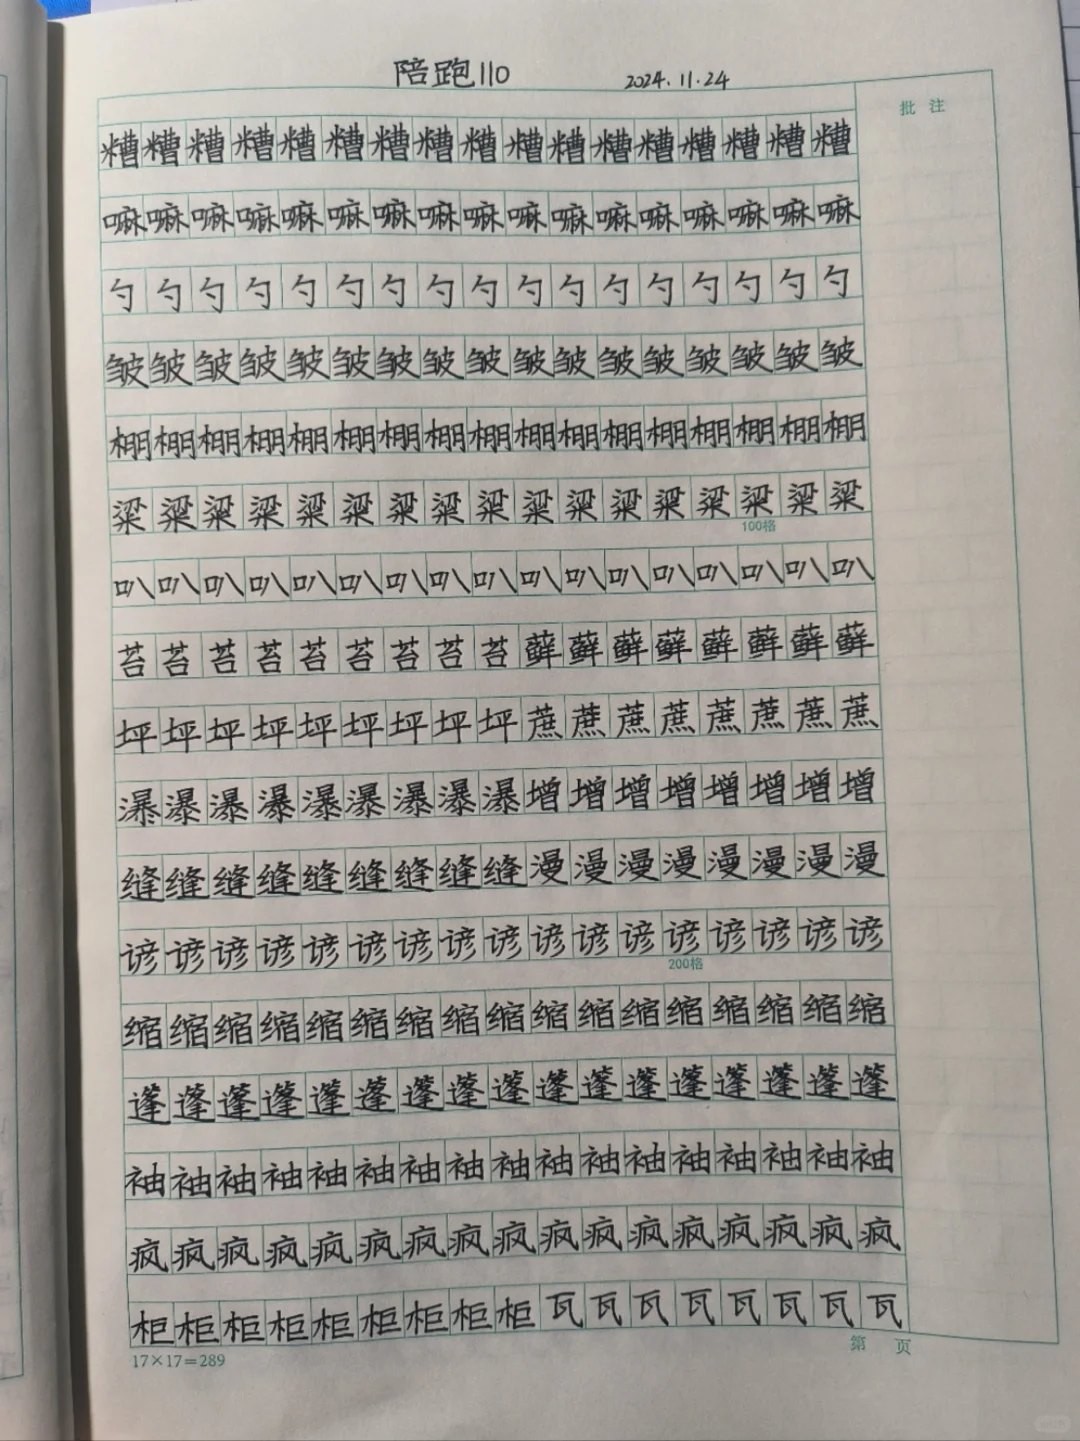 陪跑110 2024.11.24
批注
糟糟糟糟糟糟糟糟糟糟糟糟糟糟糟糟糟
嘛嘛嘛嘛嘛嘛嘛嘛嘛嘛嘛嘛嘛嘛嘛嘛嘛
勺勺勺勺勺勺勺勺勺勺勺勺勺勺勺勺勺
皱皱皱皱皱皱皱皱皱皱皱皱皱皱皱皱皱
棚棚棚棚棚棚棚棚棚棚棚棚棚棚棚棚棚
粱粱粱粱粱粱粱粱粱粱粱粱粱粱粱粱粱
100格
叭叭叭叭叭叭叭叭叭叭叭叭叭叭叭叭叭
苔苔苔苔苔苔苔苔苔藓藓藓藓藓藓藓藓
坪坪坪坪坪坪坪坪坪蔗蔗蔗蔗蔗蔗蔗蔗
瀑瀑瀑瀑瀑瀑瀑瀑瀑增增增增增增增增
缝缝缝缝缝缝缝缝缝漫漫漫漫漫漫漫漫
谚谚谚谚谚谚谚谚谚谚谚谚谚谚谚谚谚
200格
缩缩缩缩缩缩缩缩缩缩缩缩缩缩缩缩缩
蓬蓬蓬蓬蓬蓬蓬蓬蓬蓬蓬蓬蓬蓬蓬蓬蓬
袖袖袖袖袖袖袖袖袖袖袖袖袖袖袖袖袖
疯疯疯疯疯疯疯疯疯疯疯疯疯疯疯疯疯
柜柜柜柜柜柜柜柜柜瓦瓦瓦瓦瓦瓦瓦瓦
17×17=289 第 页